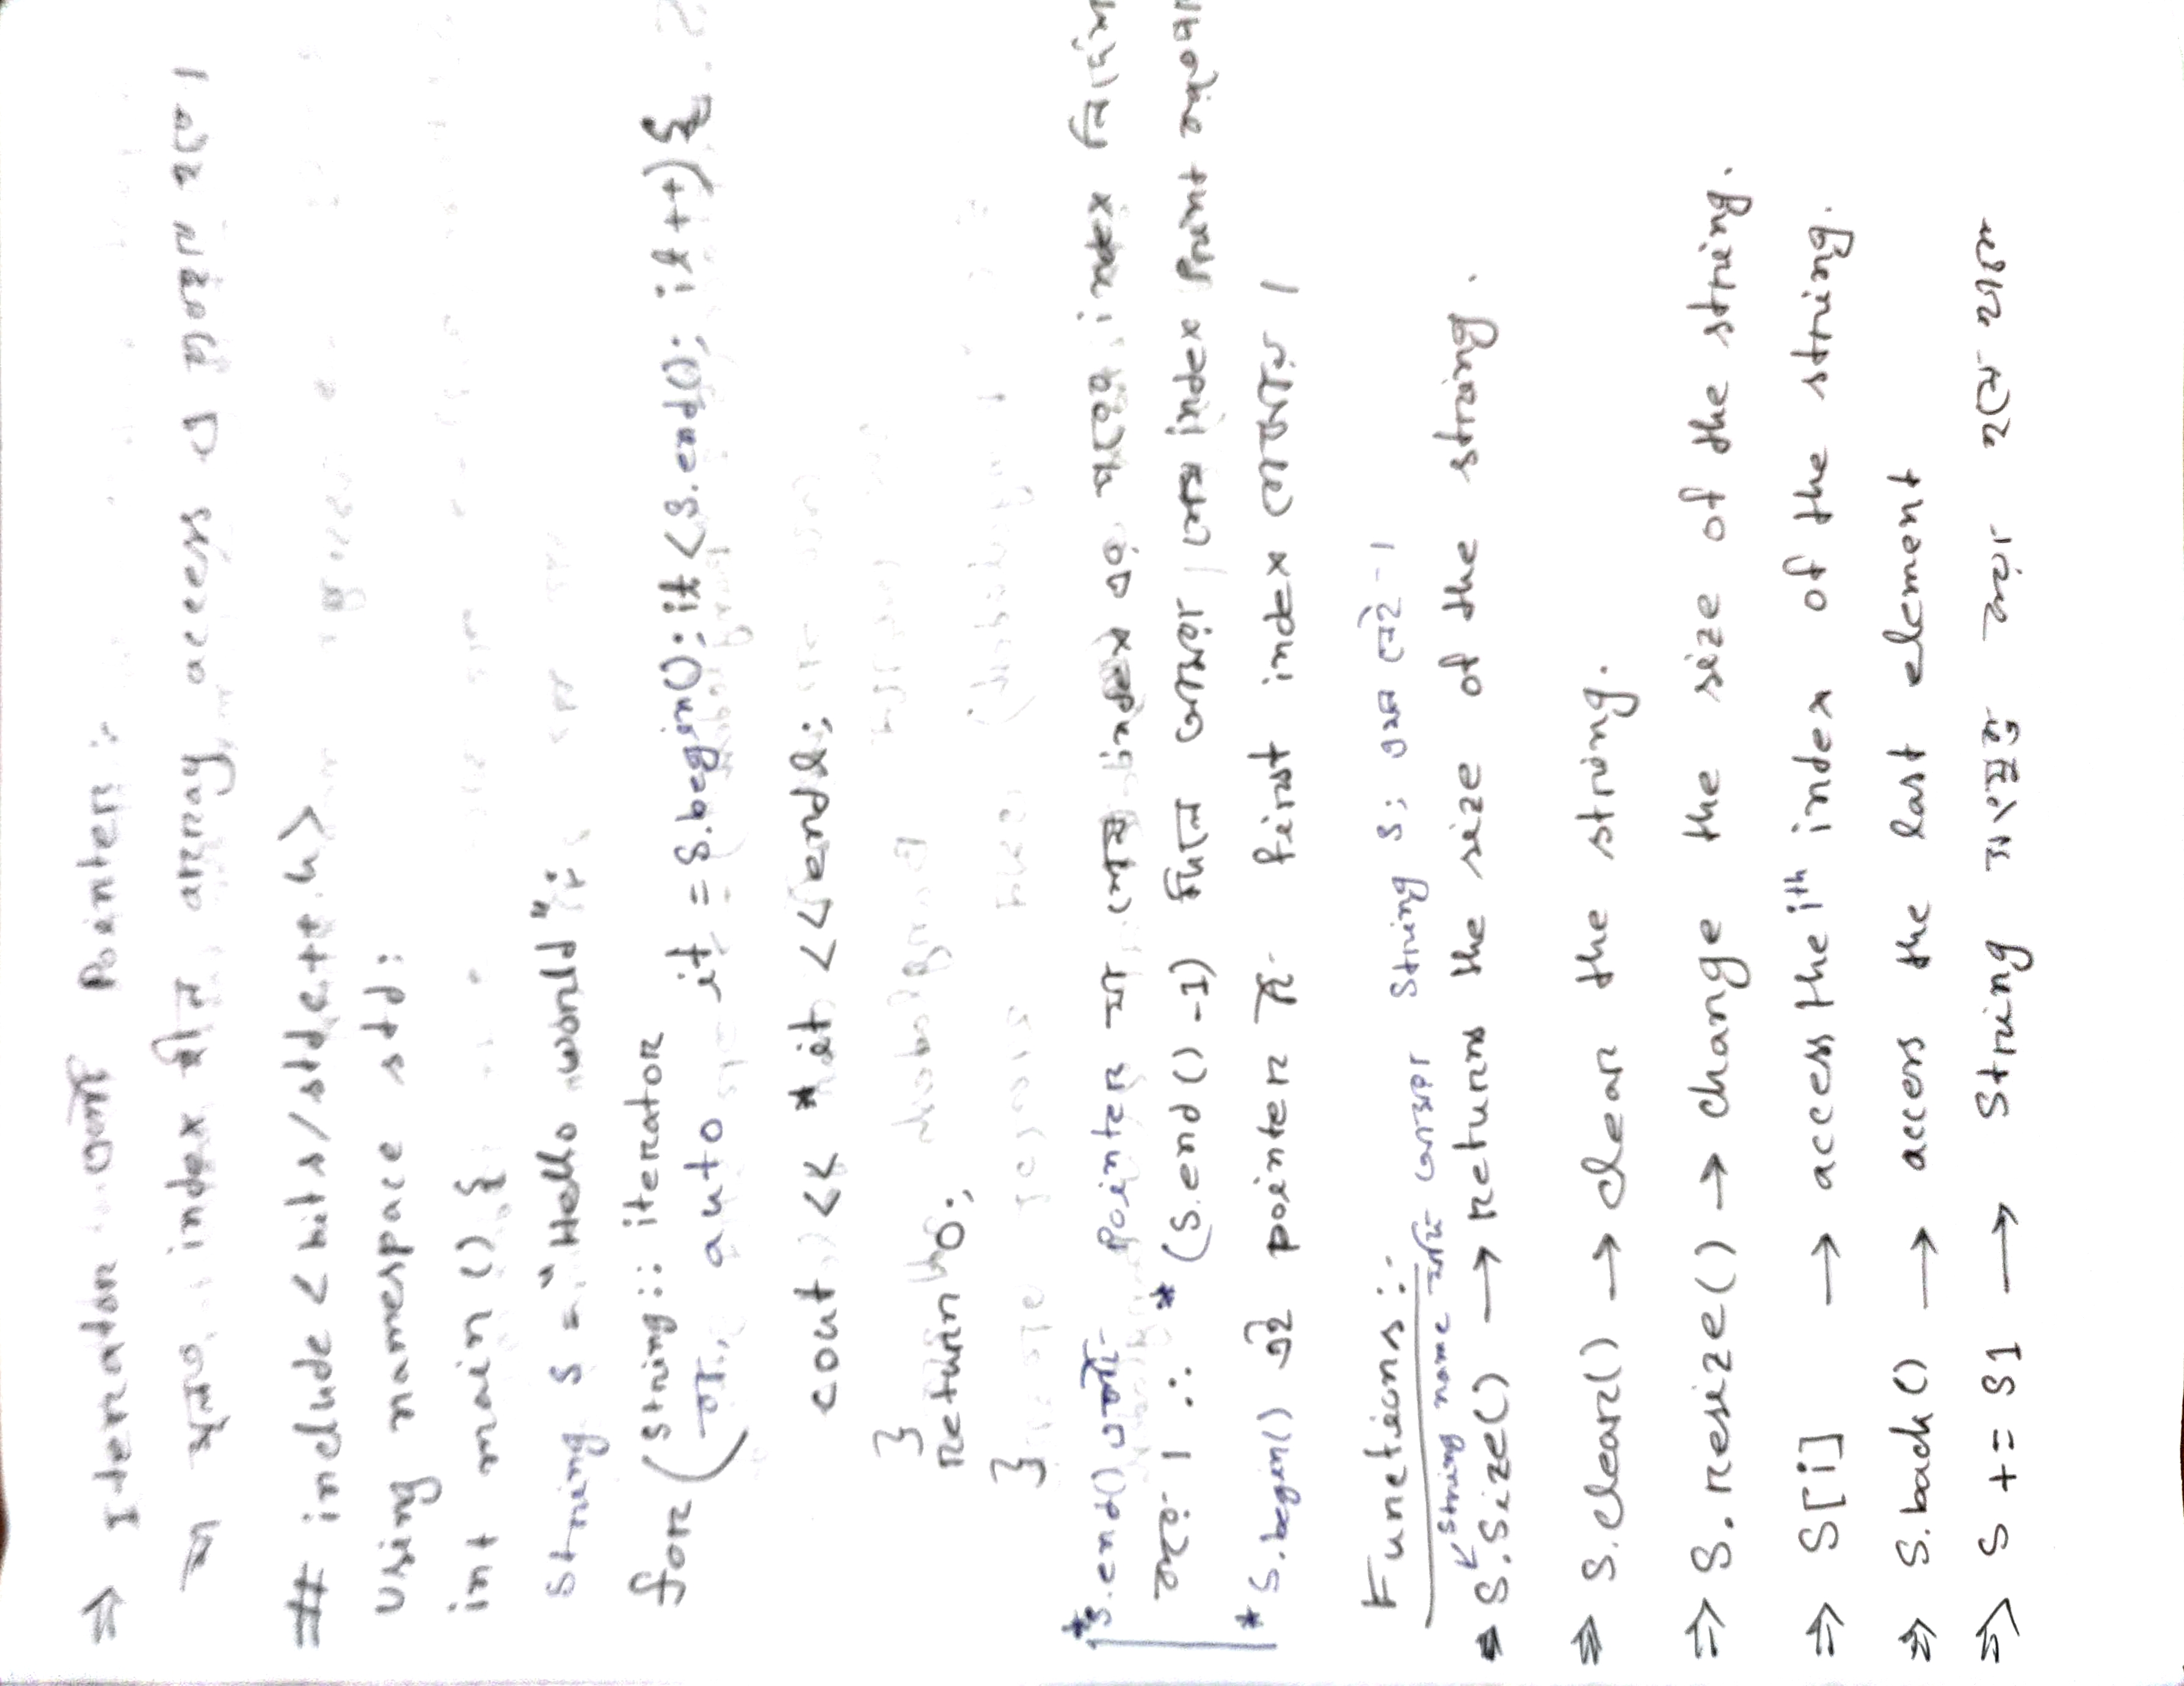 ⇒ Iterator একটি Pointer :-
যা মূলত index হীন array access এ ব্যবহৃত হবে।
# include < bits/stdc++.h>
using namespace std;
int main () {
String S = "Hello world";
for ( String :: iterator
বা, auto it = S.begin(); it < S.end(); it ++) {
cout << * it << endl;
}
return 0;
}
* S.end() একটি pointer যা শেষ index এর পরের index নির্দেশ
করে। ∴ * (S.end () -1) দিলে আমরা শেষ index Print করতে পা
* S.begin() এই pointer টি first index দেখায়।
Functions :-
String name যদি আমরা String S; এখন নেই।
⇒ S.size() → returns the size of the string.
⇒ S.clear() → clear the string.
⇒ S.resize() → change the size of the string.
⇒ S[i] → access the ith index of the string.
⇒ S.back () → access the last element
⇒ S += S1 → String সংযুক্ত করা হয়ে থাকে